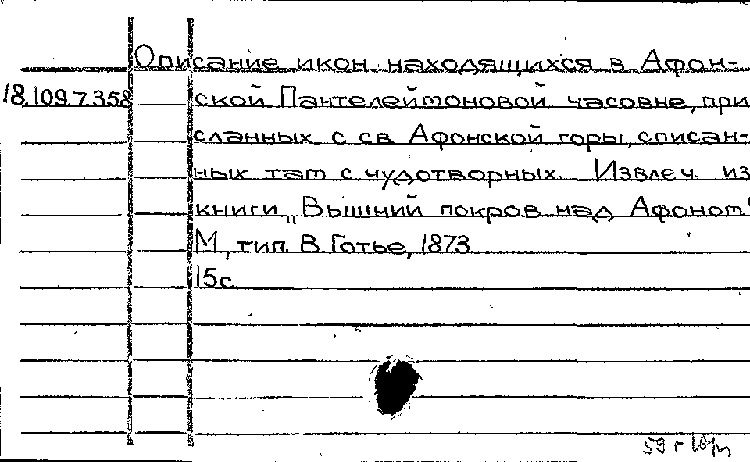 Описание икон находящихся в Афон-
18.109.7.358 ской Пантелеймоновой часовне, при
сланных с св. Афонской горы, списан-
ных там с чудотворных. Извлеч. из
книги „Вышний покров над Афоном"
М., тип. В. Готье, 1873.
15с.
59 г.